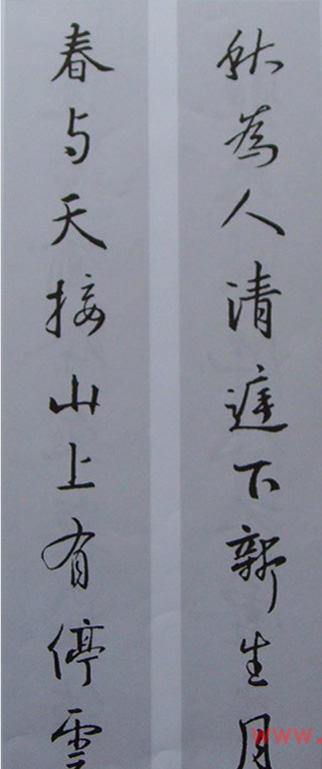 秋為人清庭下新生月
春与天接山上有停雲
www.